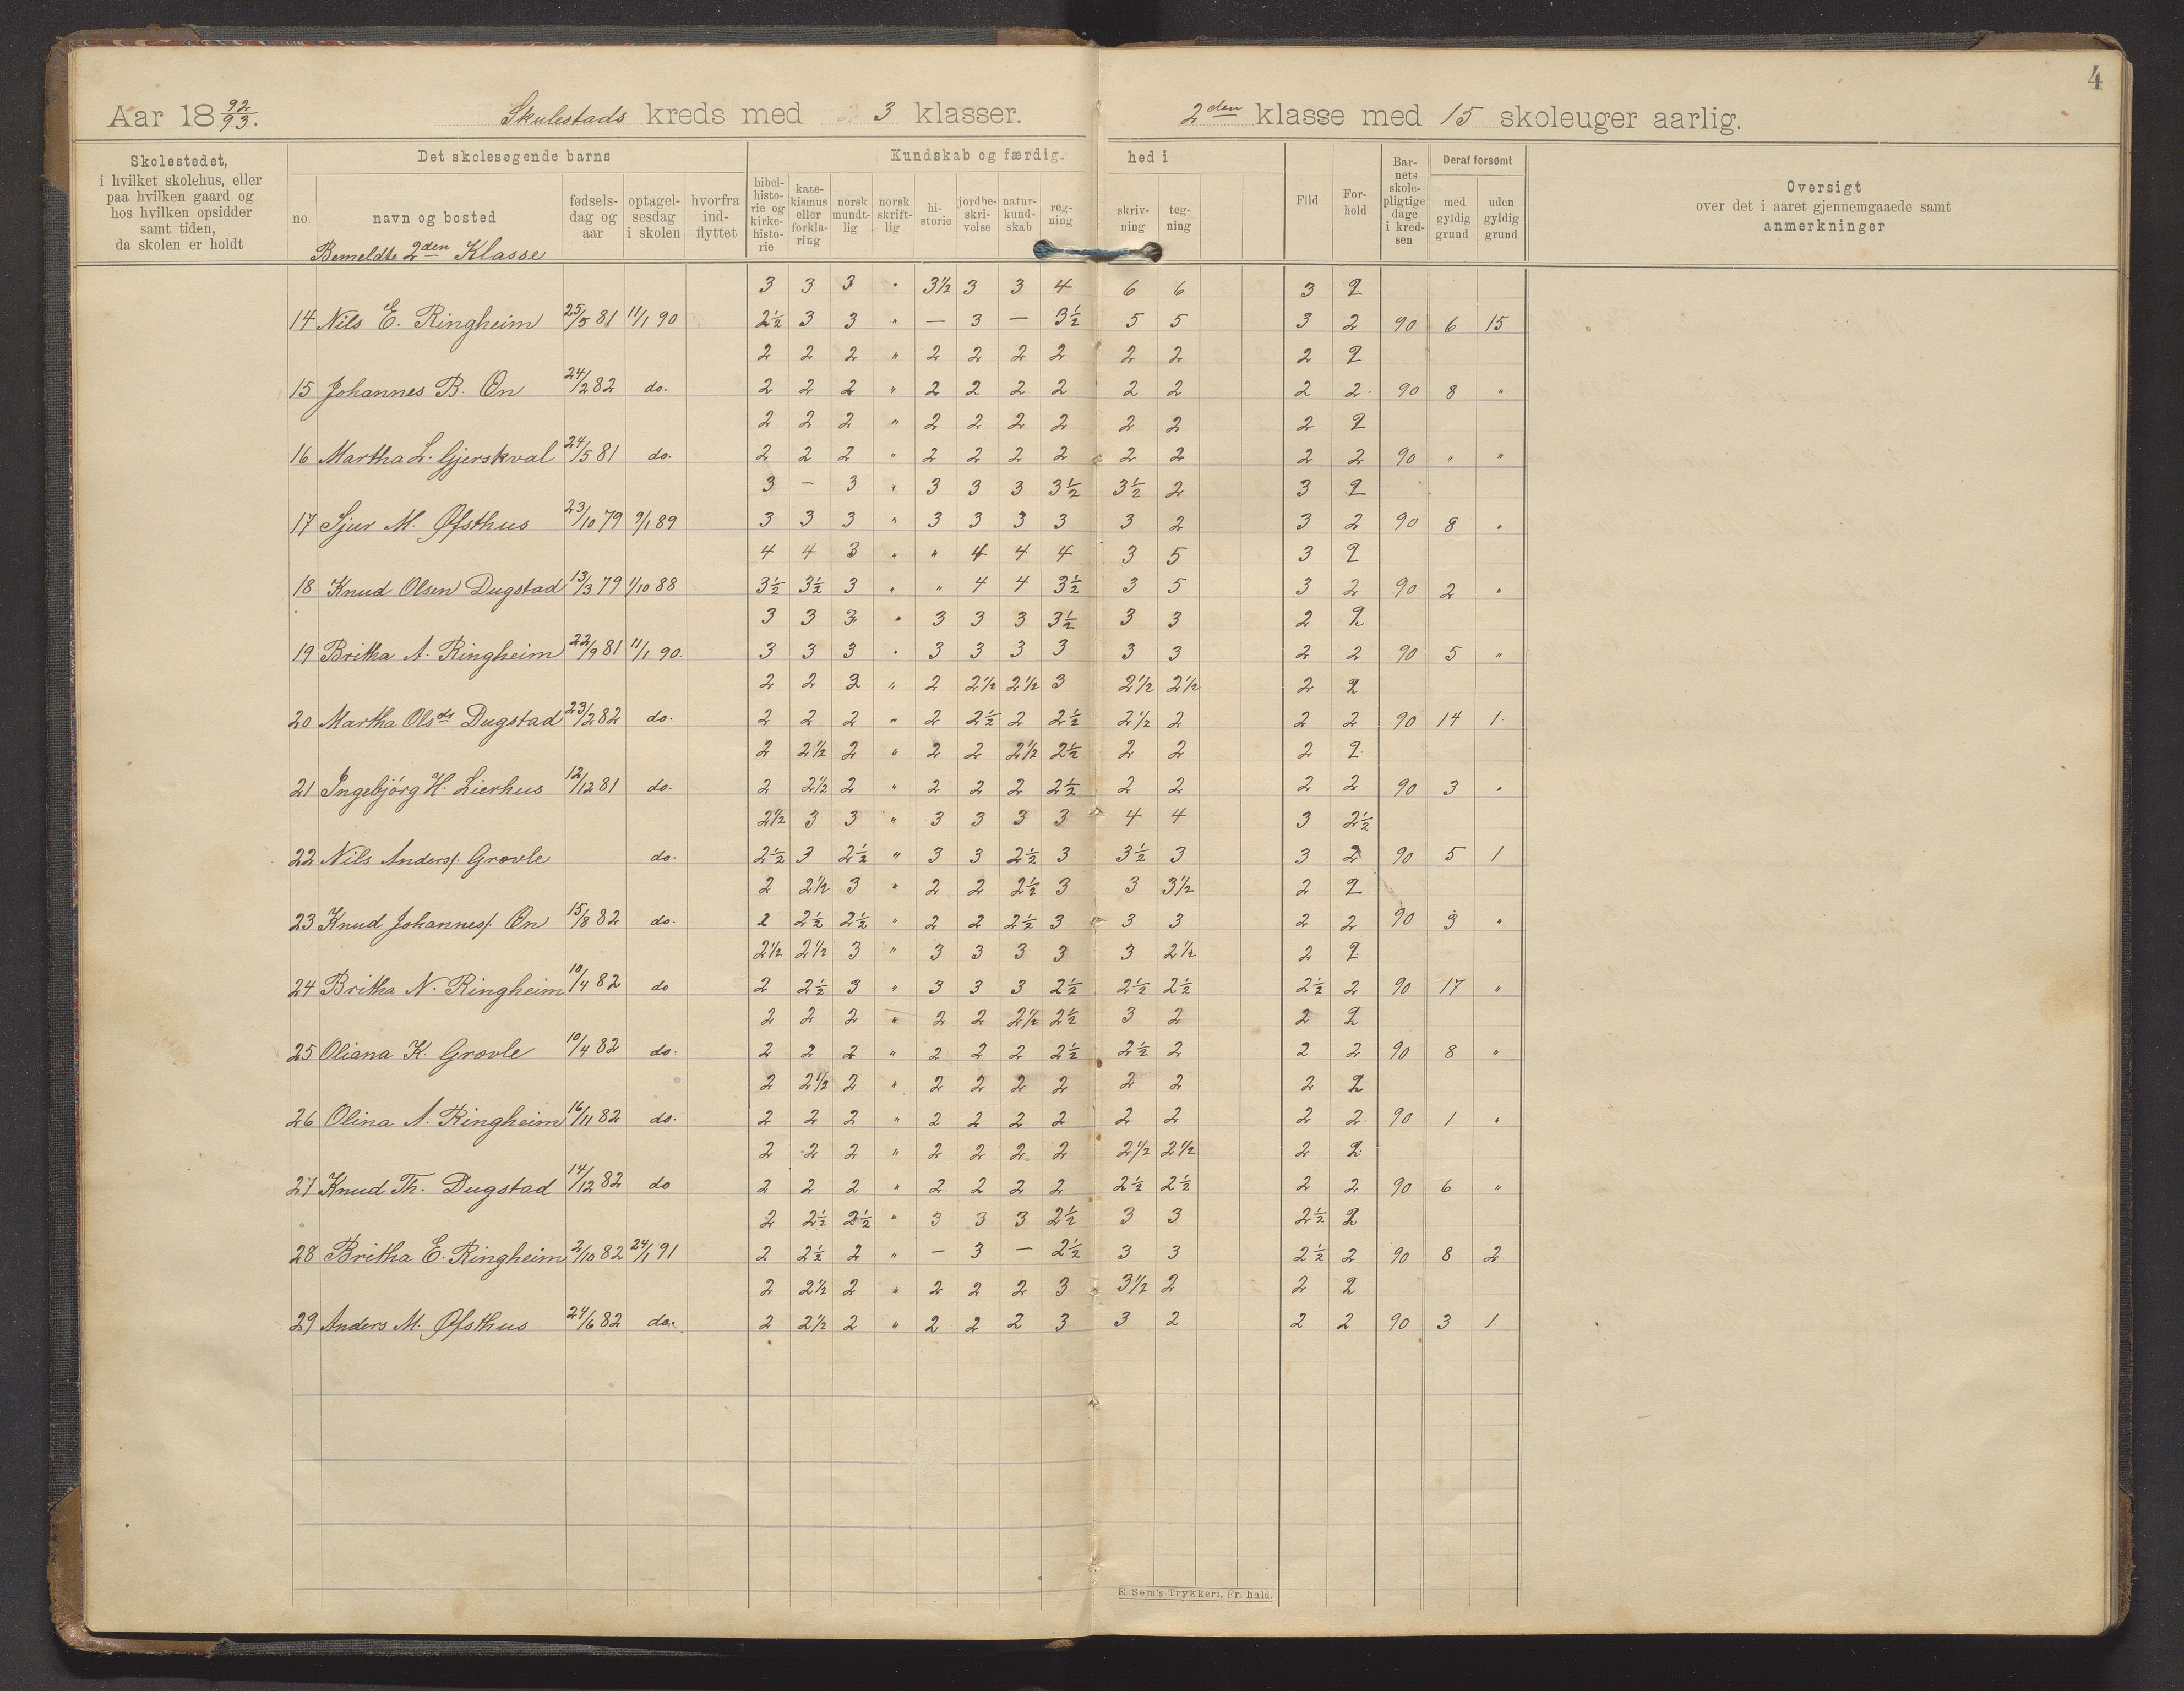 4
Aar 18 92/93. Skulestads kreds med 3 klasser. 2den klasse med 15 skoleuger aarlig.
Skolestedet, i hvilket skolehus, eller paa hvilken gaard og hos hvilken opsidder samt tiden, da skolen er holdt
Det skolesøgende barns
no. navn og bosted fødselsdag og aar optagelsesdag i skolen hvorfra indflyttet
Kundskab og færdighed i
bibelhistorie og kirkehistorie katekismus eller forklaring norsk mundtlig norsk skriftlig historie jordbeskrivelse naturkundskab regning skrivning tegning
Flid Forhold Barnets skolepligtige dage i kredsen
Deraf forsømt
med gyldig grund uden gyldig grund
Oversigt over det i aaret gjennemgaaede samt anmerkninger
Bemeldte 2den Klasse
3 3 3 " 3½ 3 3 4 6 6 3 2
14 Nils E. Ringheim 25/5 81 11/1 90 2½ 3 3 " — 3 — 3½ 5 5 3 2 90 6 15
2 2 2 " 2 2 2 2 2 2 2 2
15 Johannes B. Øn 24/2 82 do. 2 2 2 " 2 2 2 2 2 2 2 2 90 8 "
2 2 2 " 2 2 2 2 2 2 2 2
16 Martha L. Gjerskval 24/5 81 do. 2 2 2 " 2 2 2 2 2 2 2 2 90 " "
3 — 3 " 3 3 3 3½ 3½ 2 3 2
17 Sjur M. Øfsthus 23/10 79 9/1 89 3 3 3 " 3 3 3 3 3 2 3 2 90 8 "
4 4 3 " " 4 4 4 3 5 3 2
18 Knud Olsen Dugstad 13/3 79 1/10 88 3½ 3½ 3 " " 4 4 3½ 3 5 3 2 90 2 "
3 3 3 " 3 3 3 3½ 3 3 2 2
19 Britha A. Ringheim 22/9 81 11/1 90 3 3 3 " 3 3 3 3 3 3 2 2 90 5 "
2 2 3 " 2 2½ 2½ 3 2½ 2½ 2 2
20 Martha Olsdr Dugstad 23/2 82 do. 2 2 2 " 2 2½ 2 2½ 2½ 2 2 2 90 14 1
2 2½ 2 " 2 2 2½ 2½ 2 2 2 2
21 Ingebjörg H. Lierhus 12/12 81 do. 2 2½ 2 " 2 2 2 2½ 2 2 2 2 90 3 "
2½ 3 3 " 3 3 3 3 4 4 3 2½
22 Nils Anders/. Grovle do. 2½ 3 2½ " 3 3 2½ 3 3½ 3 3 2 90 5 1
2 2½ 3 " 2 2 2½ 3 3 3½ 2 2
23 Knud Johannes/. Øn 15/8 82 do. 2 2½ 2½ " 2 2 2½ 3 3 3 2 2 90 3 "
2½ 2½ 3 " 3 3 3 3 3 2½ 2 2
24 Britha N. Ringheim 10/4 82 do 2 2½ 3 " 3 3 3 2½ 2½ 2½ 2½ 2 90 17 "
2 2 2 " 2 2 2½ 2½ 3 2 2 2
25 Oliana K. Grovle 10/4 82 do. 2 2 2 " 2 2 2 2½ 2½ 2 2 2 90 8 "
2 2½ 2 " 2 2 2 2 2 2 2 2
26 Olina A. Ringheim 16/11 82 do. 2 2 2 " 2 2 2 2 2 2 2 2 90 1 "
2 2 2 " 2 2 2 2 2½ 2½ 2 2
27 Knud Th. Dugstad 14/12 82 do 2 2 2 " 2 2 2 2 2½ 2½ 2 2 90 6 "
2 2½ 2½ " 3 3 3 2½ 3 3 2½ 2
28 Britha E. Ringheim 2/10 82 24/1 91 2 2½ 2 " — 3 — 2½ 3 3 2½ 2 90 8 2
2 2½ 2 " 2 2 2 3 3½ 2 2 2
29 Anders M. Øfsthus 24/6 82 do. 2 2½ 2 " 2 2 2 3 3 2 2 2 90 3 1
E. Sem's Trykkeri, Fr. hald.